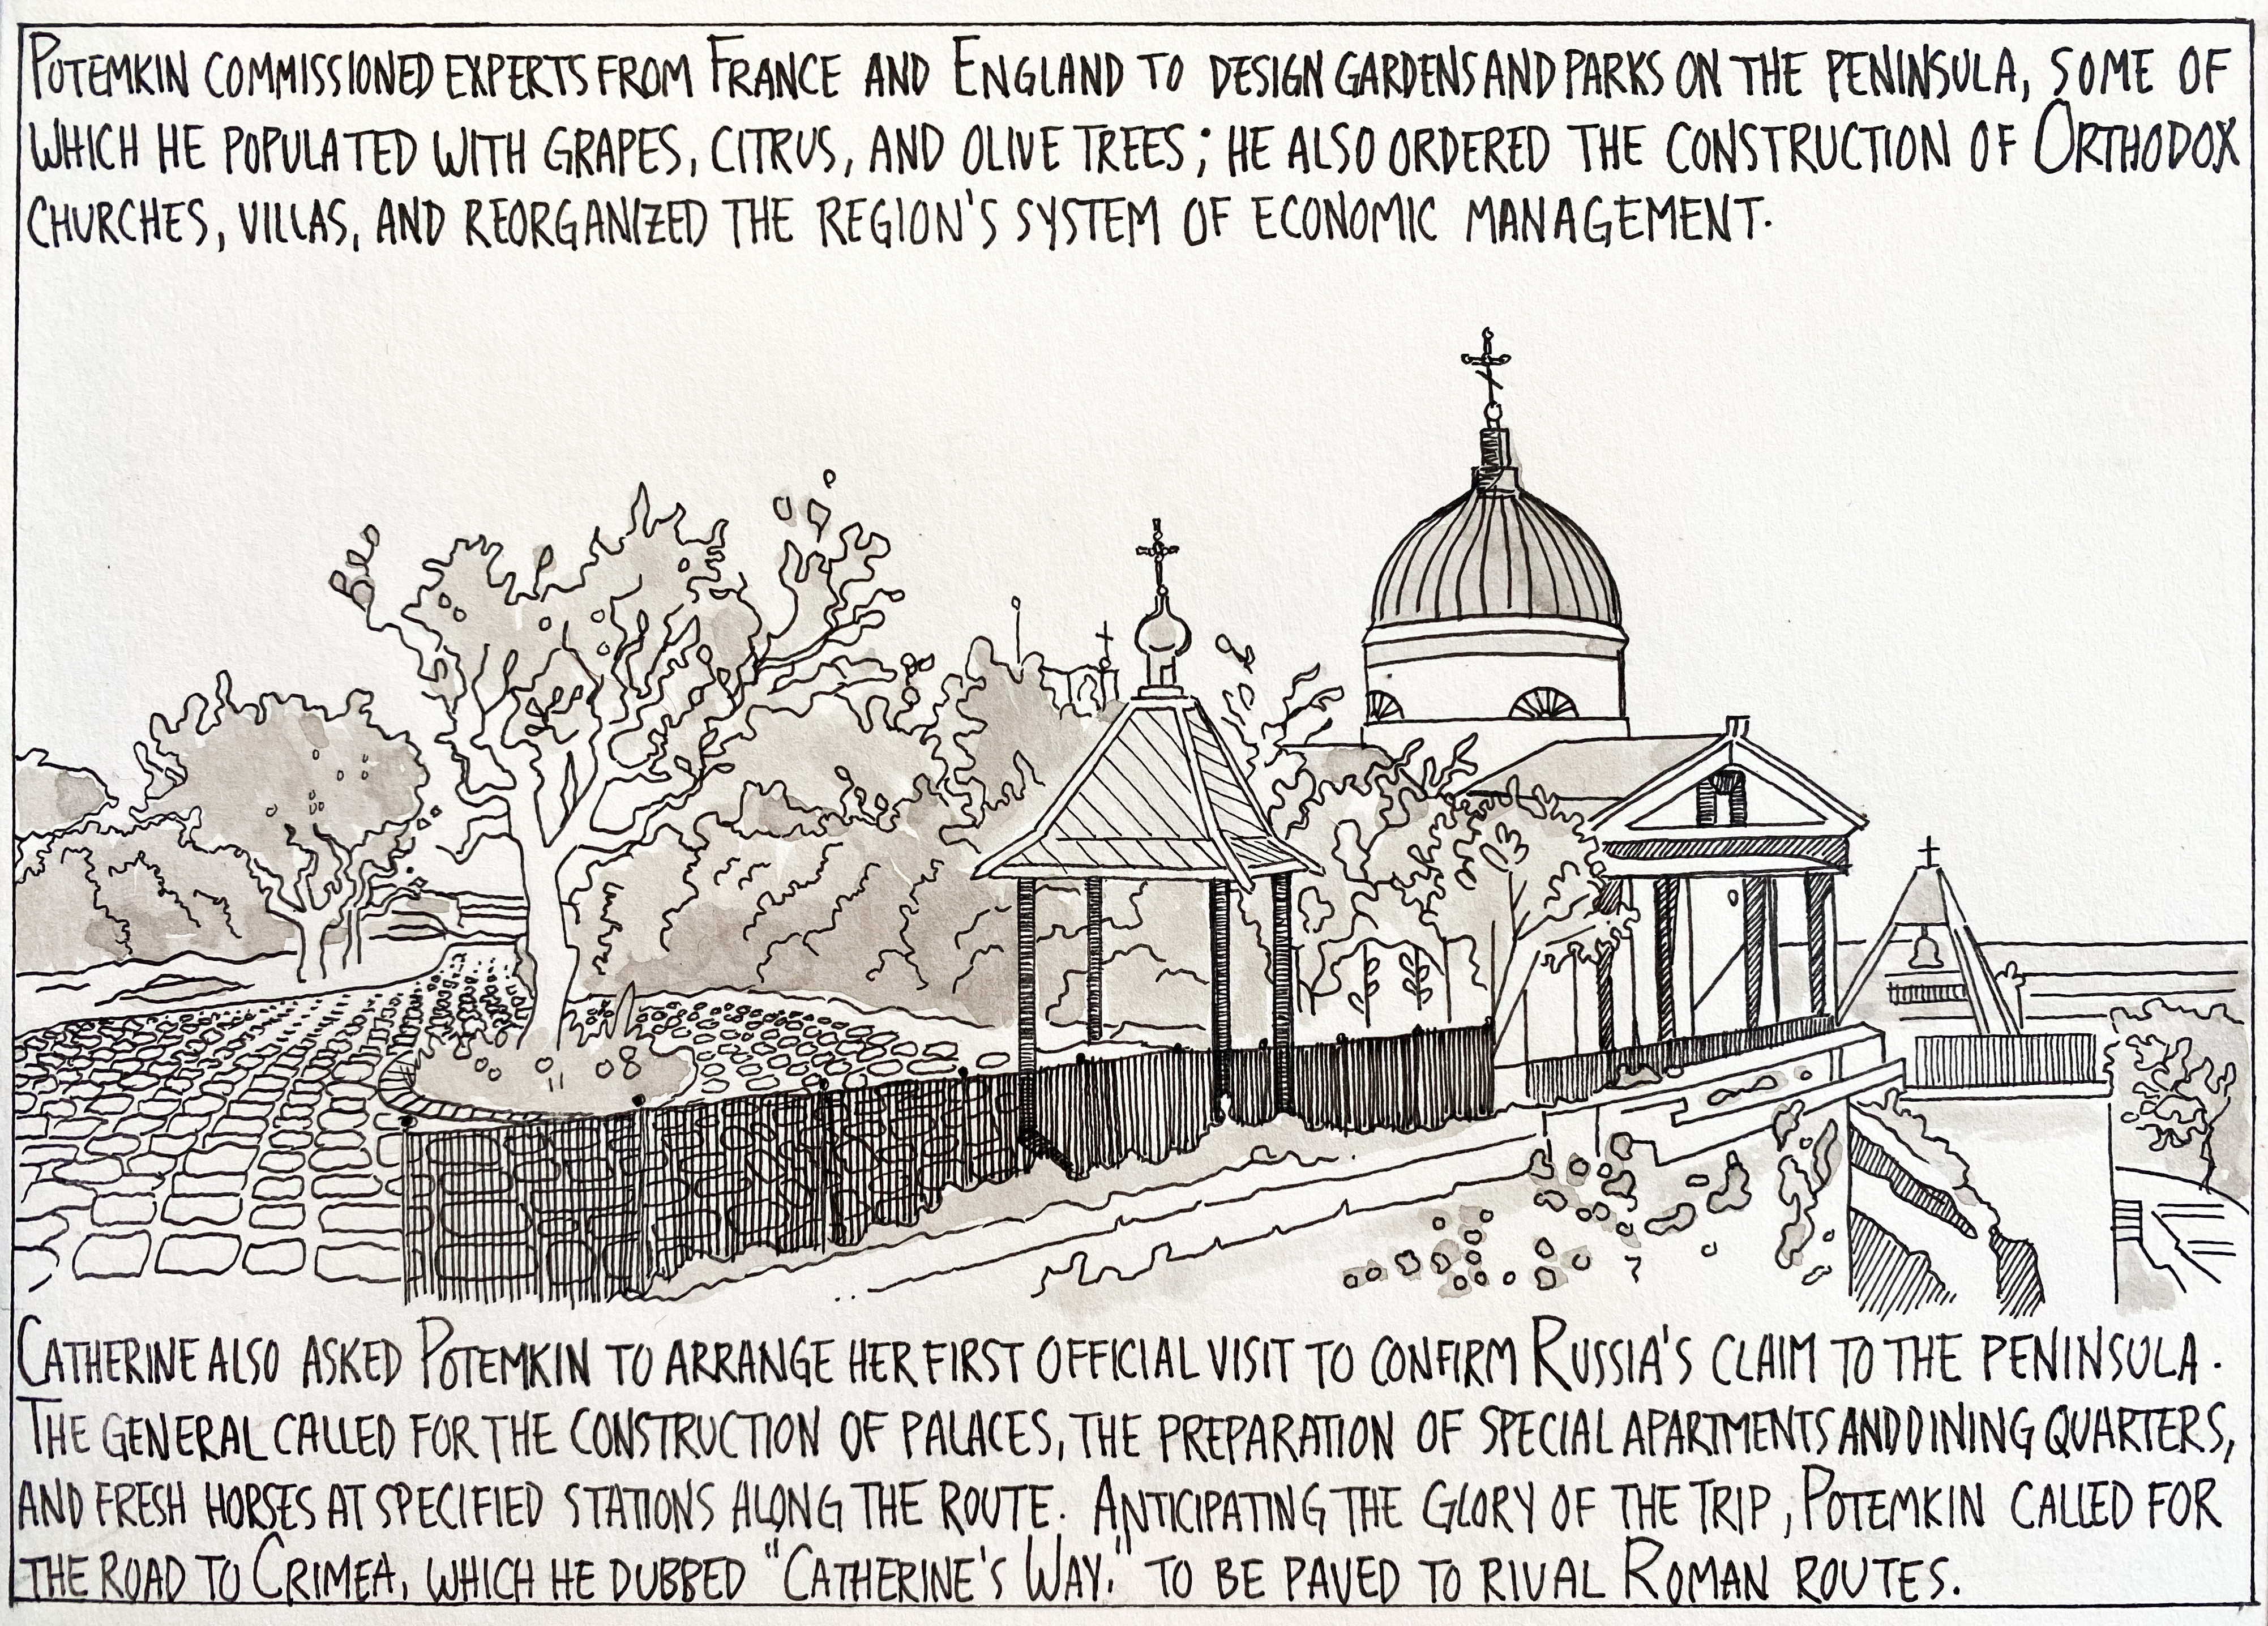 POTEMKIN COMMISSIONED EXPERTS FROM FRANCE AND ENGLAND TO DESIGN GARDENS AND PARKS ON THE PENINSULA, SOME OF
WHICH HE POPULATED WITH GRAPES, CITRUS, AND OLIVE TREES; HE ALSO ORDERED THE CONSTRUCTION OF ORTHODOX
CHURCHES, VILLAS, AND REORGANIZED THE REGION'S SYSTEM OF ECONOMIC MANAGEMENT.
CATHERINE ALSO ASKED POTEMKIN TO ARRANGE HER FIRST OFFICIAL VISIT TO CONFIRM RUSSIA'S CLAIM TO THE PENINSULA.
THE GENERAL CALLED FOR THE CONSTRUCTION OF PALACES, THE PREPARATION OF SPECIAL APARTMENTS AND DINING QUARTERS,
AND FRESH HORSES AT SPECIFIED STATIONS ALONG THE ROUTE. ANTICIPATING THE GLORY OF THE TRIP, POTEMKIN CALLED FOR
THE ROAD TO CRIMEA, WHICH HE DUBBED "CATHERINE'S WAY," TO BE PAVED TO RIVAL ROMAN ROUTES.